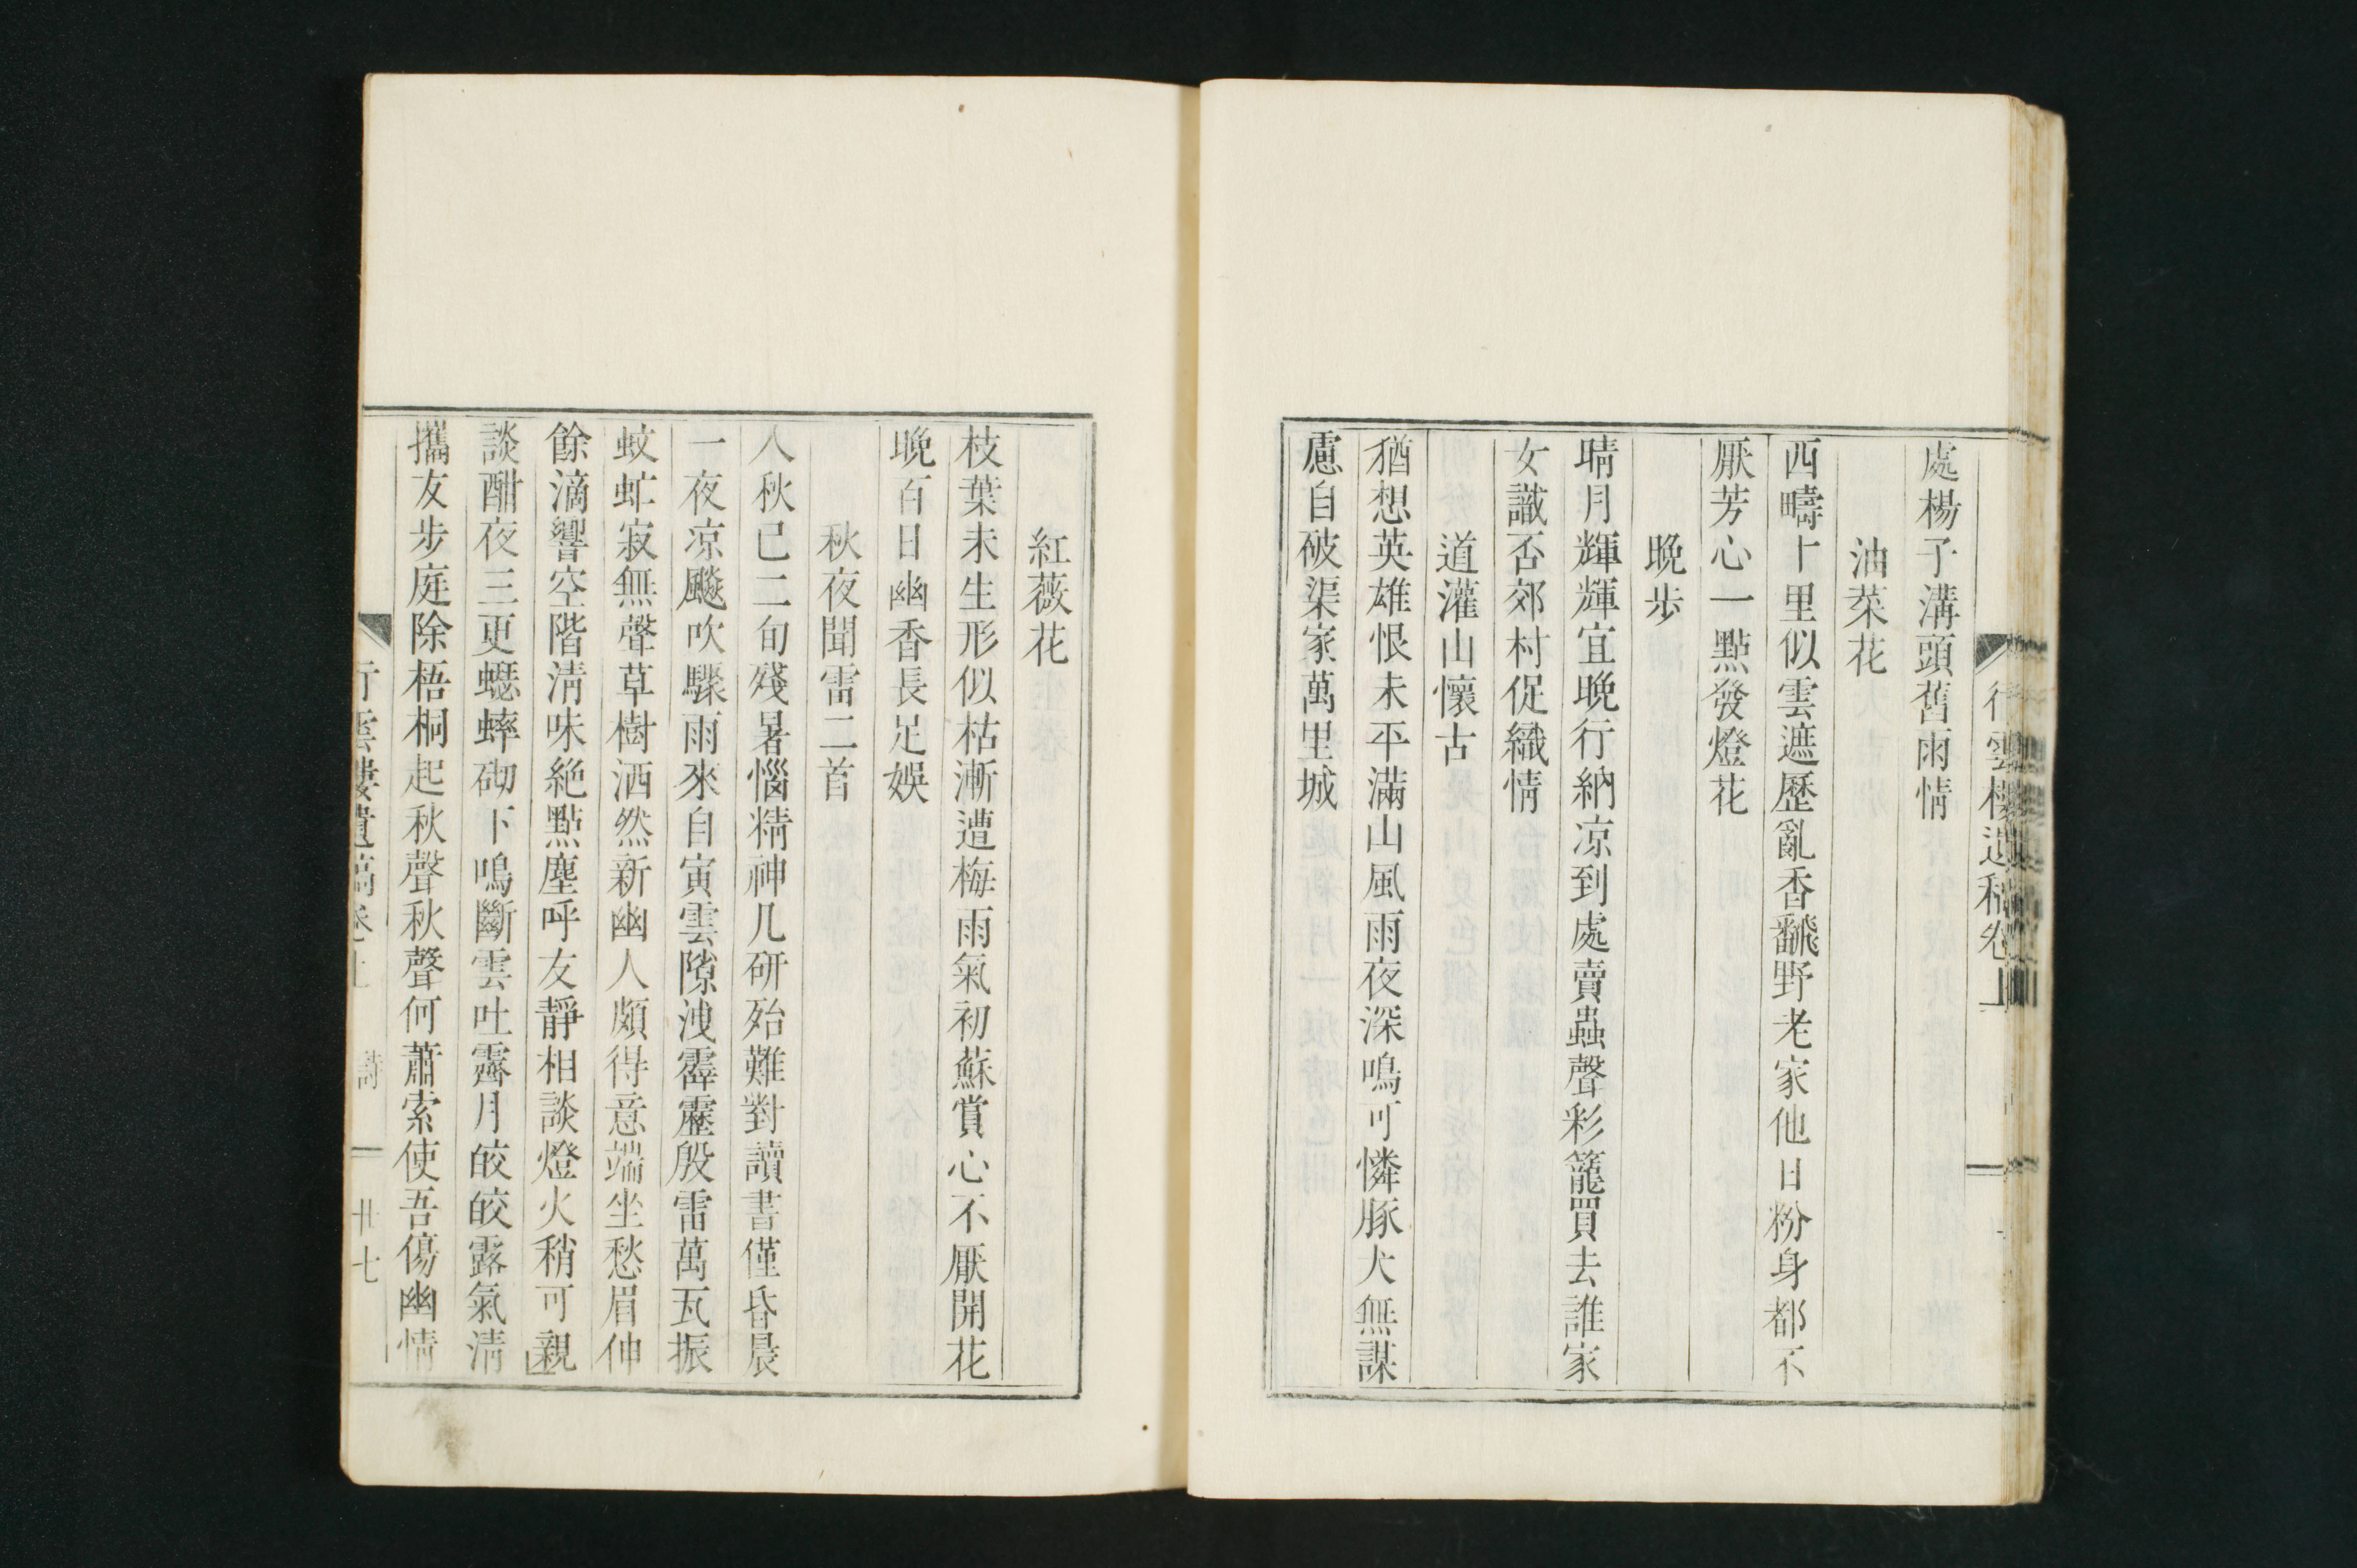 行雲樓遺稿卷上
處楊子溝頭舊雨情
油菜花
西疇十里似雲遮歷亂香飜野老家他日粉身都不
厭芳心一點發燈花
晩步
晴月輝輝宜晩行納凉到處賣蟲聲彩籠買去誰家
女識否郊村促織情
道灌山懷古
猶想英雄恨未平滿山風雨夜深鳴可憐豚犬無謀
慮自破渠家萬里城
紅薇花
枝葉未生形似枯漸遭梅雨氣初蘇賞心不厭開花
晩百日幽香長足娛
秋夜聞雷二首
人秋已二旬殘暑惱精神几研殆難對讀書僅昏晨
一夜凉飈吹驟雨來自寅雲隙洩霹靂殷雷萬瓦振
蚊虻寂無聲草樹洒然新幽人頗得意端坐愁眉伸
餘滴響空階淸味絶點塵呼友靜相談燈火稍可親」
談酣夜三更蟋蟀砌下鳴斷雲吐霽月皎皎露氣淸
攜友步庭除梧桐起秋聲秋聲何蕭索使吾傷幽情
行雲樓遺稿卷上　詩　廿七